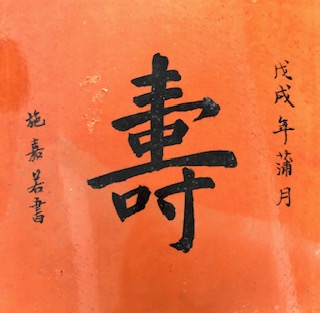 戊戌年蒲月
壽
施嘉若書